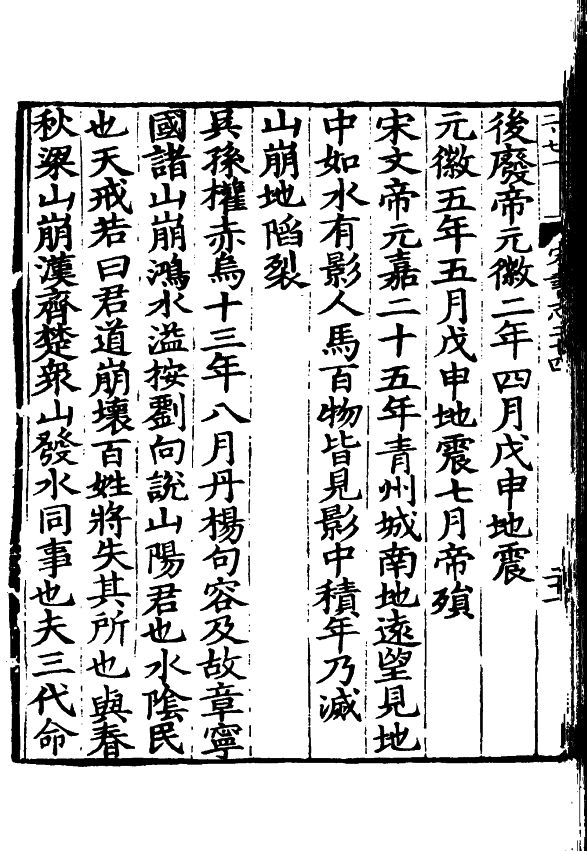 後廢帝元徽二年四月戊申地震
元徽五年五月戊申地震七月帝殞
宋文帝元嘉二十五年青州城南地遠望見地
中如水有影人馬百物皆見影中積年乃滅
山崩地陷裂
吳孫權赤烏十三年八月丹楊句容及故章寧
國諸山崩鴻水溢按劉向說山陽君也水陰民
也天戒若曰君道崩壞百姓將失其所也與春
秋梁山崩漢齊楚衆山發水同事也夫三代命